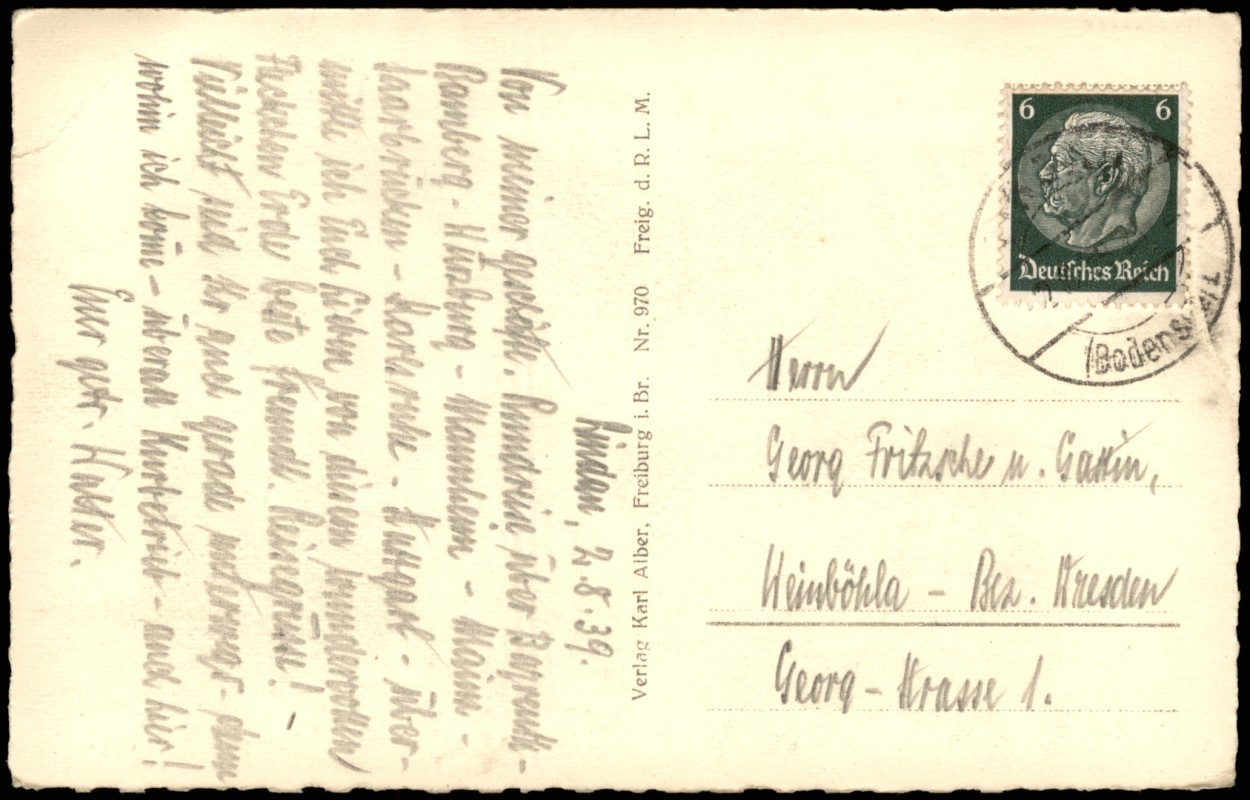 Lindau, 2.8.39.
Von meiner geschäftl. Rundreise über Bayreuth-
Bamberg - Würzburg - Mannheim - Mainz -
Saarbrücken - Karlsruhe - Stuttgart - über-
mittle ich Euch Lieben von diesem wundervollen
Fleckchen Erde beste freundl. Reisegrüsse!
Vielleicht seid Ihr auch grade unterwegs - denn
wohin ich komme - überall Hochbetrieb - auch hier!
Euer getr. Walter.
Verlag Karl Alber, Freiburg i. Br. Nr. 970 Freig. d. R. L. M.
6 6
Deutsches Reich
(Bodensee)
Herrn
Georg Fritzsche u. Gattin,
Weinböhla - Bez. Dresden
Georg-Strasse 1.